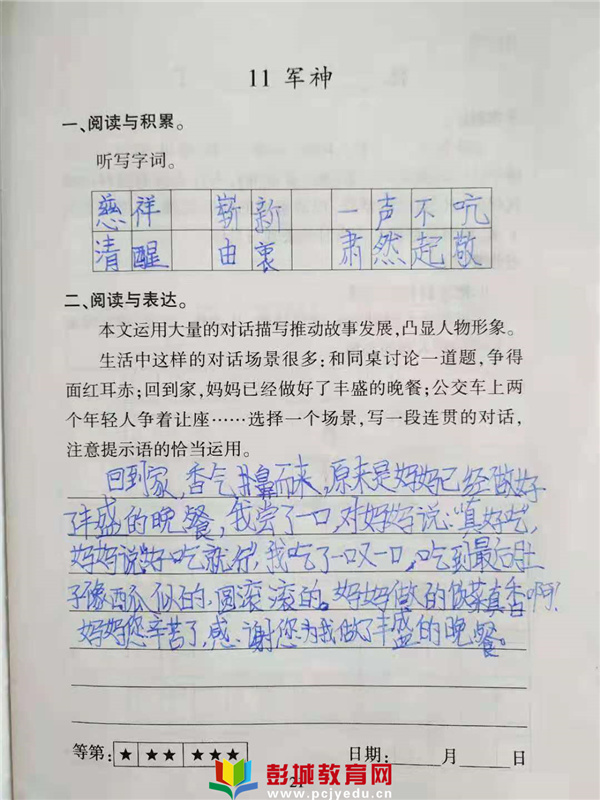 11 军神
一、阅读与积累。
听写字词。
慈祥 崭新 一声不吭
清醒 由衷 肃然起敬
二、阅读与表达。
本文运用大量的对话描写推动故事发展,凸显人物形象。
生活中这样的对话场景很多:和同桌讨论一道题,争得
面红耳赤;回到家,妈妈已经做好了丰盛的晚餐;公交车上两
个年轻人争着让座……选择一个场景,写一段连贯的对话,
注意提示语的恰当运用。
回到家,香气扑鼻而来,原来是妈妈已经做好
了丰盛的晚餐,我尝了一口,对妈妈说:“真好吃,
妈妈说“好吃就行,我吃了一口又一口,吃到最后肚
子像西瓜似的,圆滚滚的。妈妈做的饭菜真香啊!
妈妈您辛苦了,感谢您为我做了丰盛的晚餐。
等第: ★ ★ ★ ★ ★ 日期: 月 日
21
彭城教育网
www.pcjyedu.cn